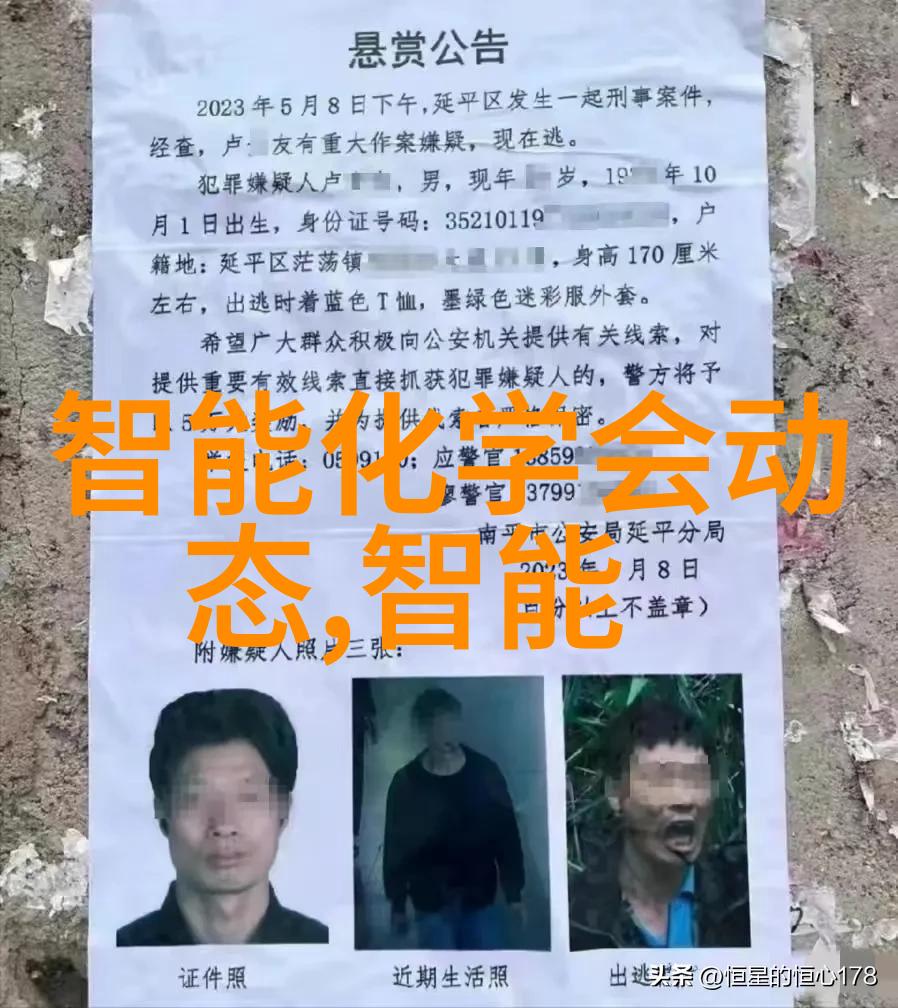 悬赏公告
2023年5月8日下午，延平区发生一起刑事案件，
经查，卢 友有重大作案嫌疑，现在逃。
犯罪嫌疑人卢 ，男，现年 岁，19 年10
月1日出生，身份证号码：35210119 ，户
籍地：延平区茫荡镇 ，身高170厘米
左右，出逃时着蓝色T恤，墨绿色迷彩服外套。
希望广大群众积极向公安机关提供有关线索，对
提供重要有效线索直接抓获犯罪嫌疑人的，警方将予
密。
智能化学会动
态,智能
电话：05 应警官 859
警官 3799
南平市公安局延平分局
月8日
不盖章）
附嫌疑人照片三张：
证件照
近期生活照
出逃
头条 @恒星的恒心178